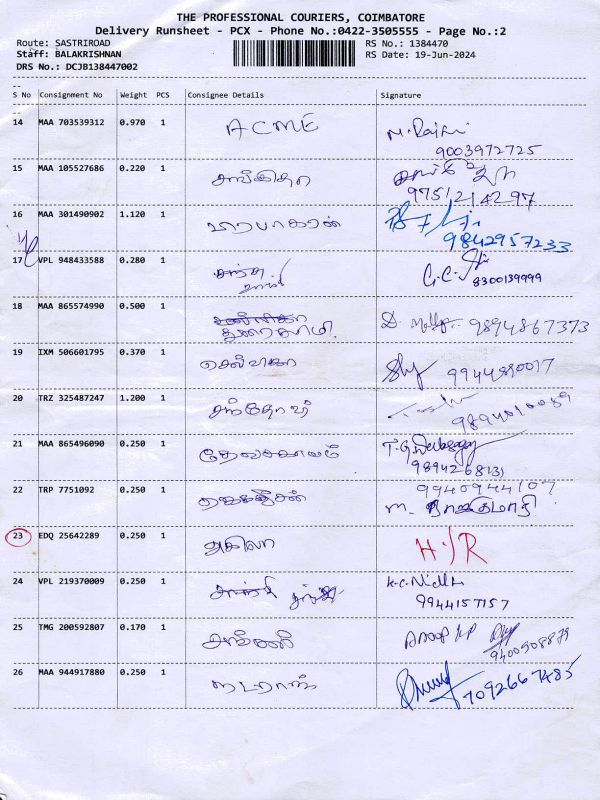 THE PROFESSIONAL COURIERS, COIMBATORE
Delivery Runsheet - PCX - Phone No.:0422-3505555 - Page No.:2
Route: SASTRIROAD RS No.: 1384470
Staff: BALAKRISHNAN RS Date: 19-Jun-2024
DRS No.: DCJB138447002
S No Consignment No Weight PCS Consignee Details Signature
14 MAA 703539312 0.970 1 ACME M. Rajni
9003972725
15 MAA 105527686 0.220 1 சங்கிதா
9751214297
16 MAA 301490902 1.120 1 பிரபாகரன்
9842957233
17 VPL 948433588 0.280 1 G.C.
8300139999
18 MAA 865574990 0.500 1
துரைசாமி D. 9894867373
19 IXM 506601795 0.370 1 செல்வகா 9944890017
20 TRZ 325487247 1.200 1 சந்தோஷ் 9894010089
21 MAA 865496090 0.250 1 தேவசகாயம் T.G.
9894268131
22 TRP 7751092 0.250 1 9940944107
M.
23 EDQ 25642289 0.250 1 அகிலா H.JR
24 VPL 219370009 0.250 1 K.C.
9944157157
25 TMG 200592807 0.170 1 ANOOP KP
9400908879
26 MAA 944917880 0.250 1 நடராஜ்
7092667485